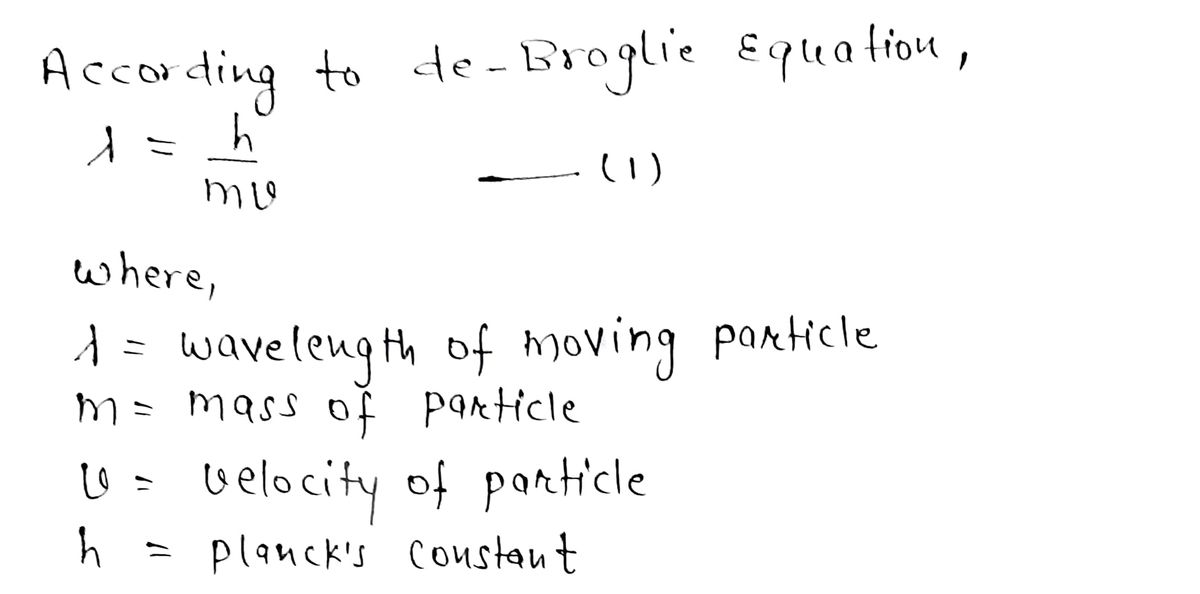 According to de-Broglie Equation,
λ = h/mv —— (1)
where,
λ = wavelength of moving particle
m = mass of particle
v = velocity of particle
h = planck's constant